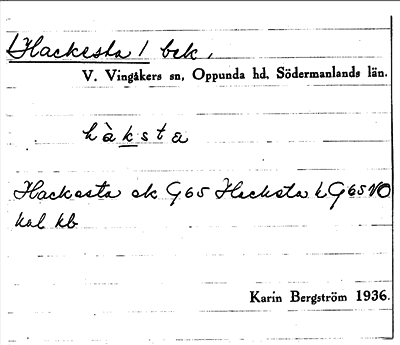 Hackesta / bek.
V. Vingåkers sn, Oppunda hd, Södermanlands län.
hàksta
Hackesta ek G65 Hacksta h G65NO
kal kb
Karin Bergström 1936.